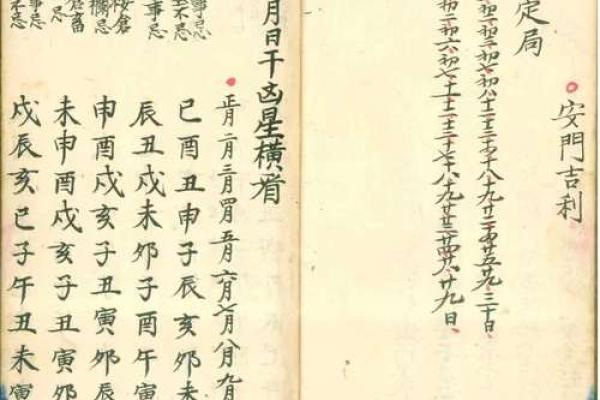 安門吉利
定局
初三初七初八十二十三十八十九廿二廿五廿九三十日
初二初六初七十一十二十三十七十八十九廿三廿四廿八廿九日
月日干凶星橫看
正月二月三月四月五月六月七月八月九月
巳酉丑申子辰亥卯未
辰丑戌未卯子酉午寅
申酉戌亥子丑寅卯辰
未申酉戌亥子丑寅卯
戌辰亥巳子午丑未寅
事忌
不忌
事忌